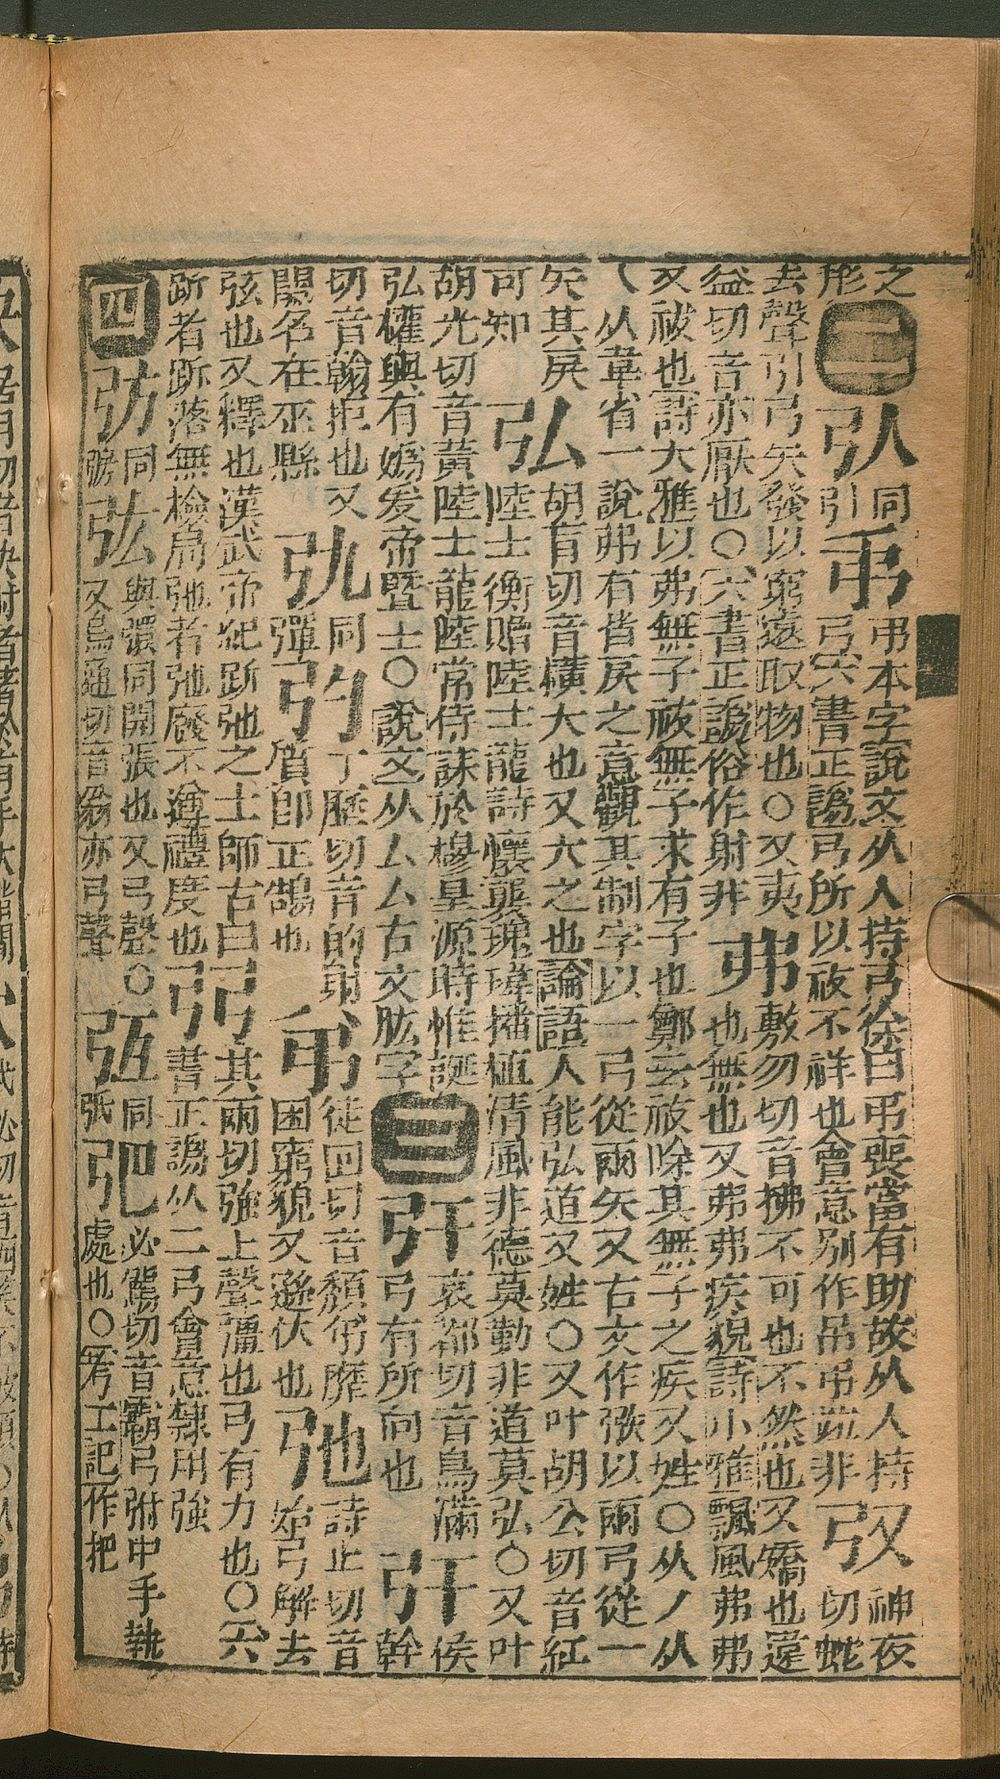 之
形二弘同引弔弔本字說文从人持弓徐曰弔喪當有助故从人持
弓六書正譌弓所以祓不祥也會意别作吊弔𨑩非𢎽神夜切蛇
去聲引弓矢發以窮遠取物也○又夷
益切音亦厭也○六書正譌俗作射非弗敷勿切音拂不可也不然也又矯也違
也無也又弗弗疾貌詩小雅飄風弗弗
又祓也詩大雅以弗無子祓無子求有子也鄭云祓除其無子之疾又姓○从丿从
乀从韋省一說弗有皆戾之意觀其制字以一弓從兩矢又古文作𢎵以兩弓從一
矢其戾
可知弘胡肓切音橫大也又大之也論語人能弘道又姓○又叶胡公切音紅
陸士衡贈陸士龍詩懷襲瑰瑋播植清風非德莫勤非道莫弘○又叶
胡光切音黃陸士龍陸常侍誄於穆皇源時惟誕
弘權輿有嬀爰帝暨士○說文从厶厶古文肱字三弙哀都切音烏滿
弓有所向也㢨侯幹
切音翰拒也又
關名在巫縣𢎫同彈𢎭丁歷切音的射
質卽正鵠也𢎨徒回切音頹弟靡
困窮貌又遜伏也弛詩止切音
始弓解去
弦也又釋也漢武帝紀跅弛之士師古曰
跅者跅落無檢局弛者弛廢不遵禮度也弜其兩切強上聲彊也弓有力也○六
書正譌从二弓會意隸用強
四𢏇同𢐊弦與彋同開張也又弓聲○
又烏通切音翁亦弓聲弫同弤弝必駕切音霸弓弣中手執
處也○考工記作把